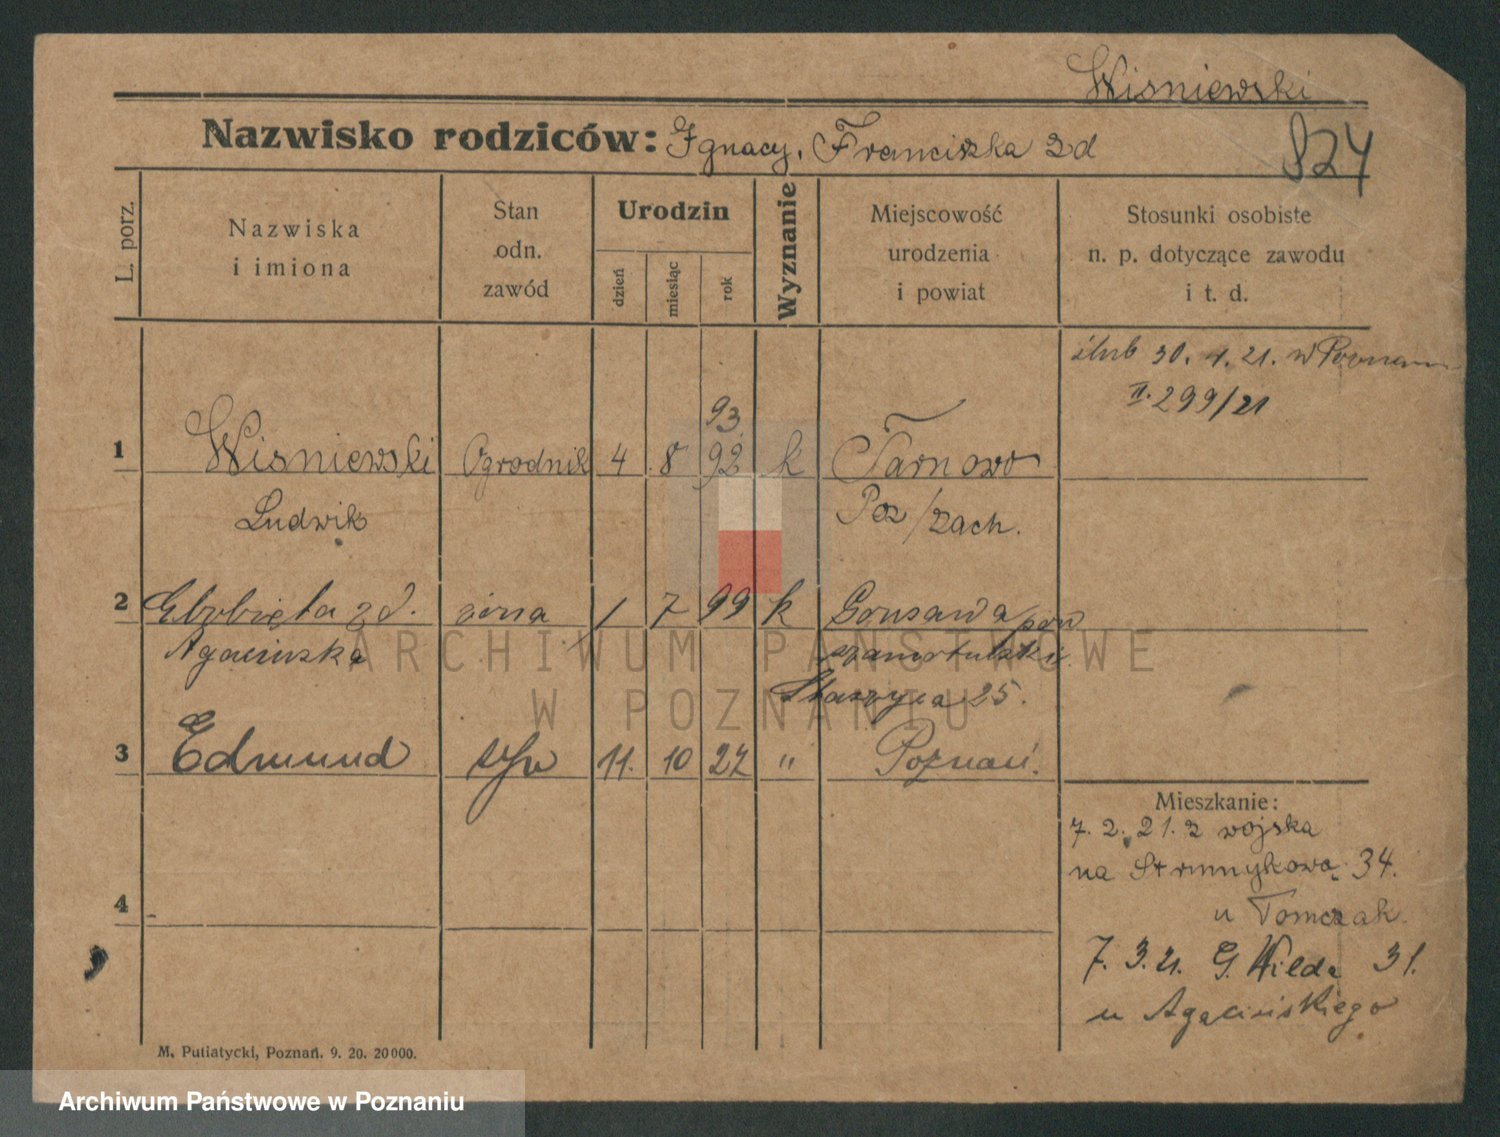 Wisniewski
Nazwisko rodziców: Ignacy, Franciszka zd
824
L. porz.
Nazwiska
i imiona
Stan
odn.
zawód
Urodzin
dzień
miesiąc
rok
Wyznanie
Miejscowość
urodzenia
i powiat
Stosunki osobiste
n. p. dotyczące zawodu
i t. d.
ślub 30. 4. 21. w Poznaniu
II. 299/21
93
1 Wisniewski Ogrodnik 4 8 92 k Tarnowo
Ludwik Poz/zach.
2 Elżbieta zd. żona 1 7 99 k
Agacińska
Staszyca 25.
3 Edmund syn 11. 10 22 " Poznań.
4
Mieszkanie:
7. 2. 21. z wojska
na Strumykowa 34.
u Tomczak.
7. 3. 21. G. Wilda 31.
u Agacińskiego
M. Putiatycki, Poznań. 9. 20. 20000.
ARCHIWUM PAŃSTWOWE
W POZNANIU
Archiwum Państwowe w Poznaniu